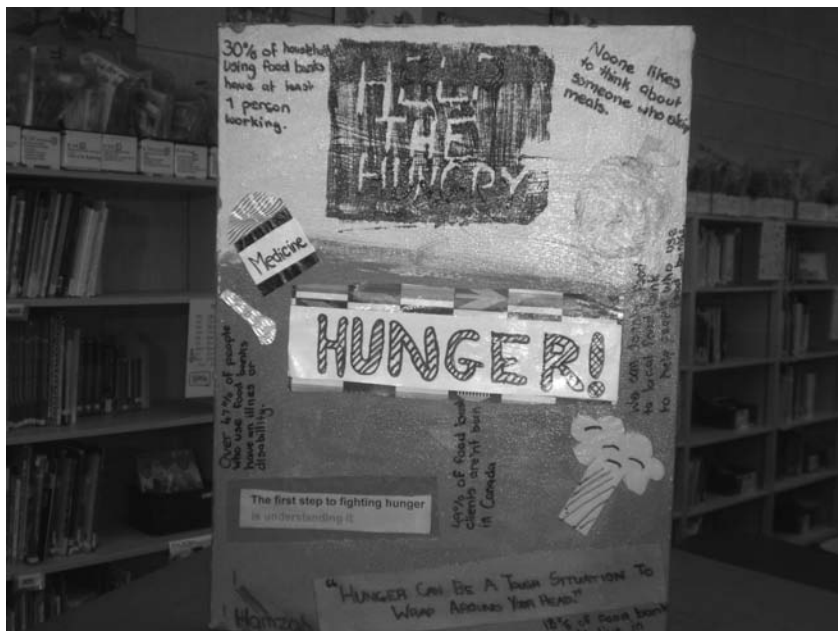 30% of households
using food banks
have at least
1 person
working.
HELP
THE
HUNGRY
Noone likes
to think about
someone who skip
meals.
Medicine
HUNGER!
Over 67% of people
who use food banks
have an illnes or
disability.
We can donate food
to local food bank
to help people who use
food banks.
49% of food bank
clients are'nt born
in Canada
The first step to fighting hunger
is understanding it
"HUNGER CAN BE A TOUGH SITUATION TO
WRAP AROUND YOUR HEAD."
Hamzah
18% of food bank